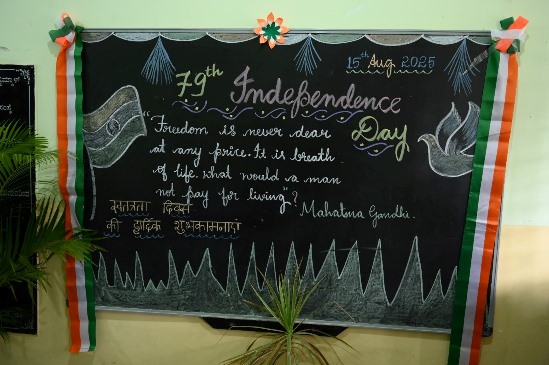 15th Aug 2025
79th Independence
Day
"Freedom is never dear
at any price. It is breath
of life. what would a man
not pay for living"?
Mahatma Gandhi.
स्वतंत्रता दिवस
की हार्दिक शुभकामनाएं